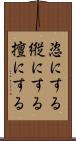 恣にする
縦にする
擅にする